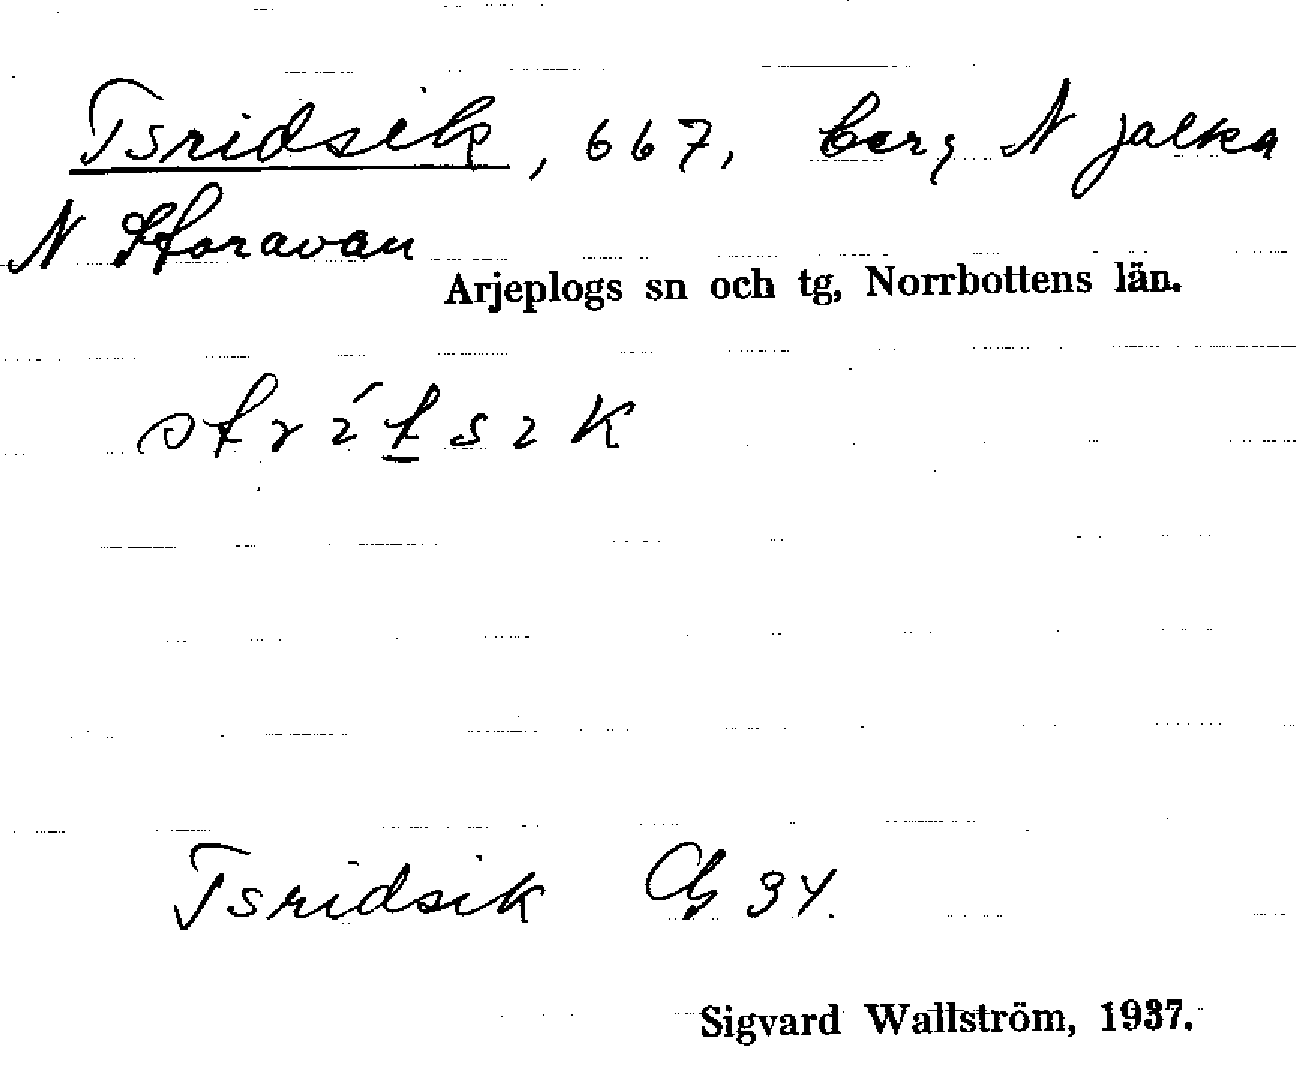 Tsridsik, 667, berg N Jalka
N Storavan
Arjeplogs sn och tg, Norrbottens län.
Tsridsik 34.
Sigvard Wallström, 1937.